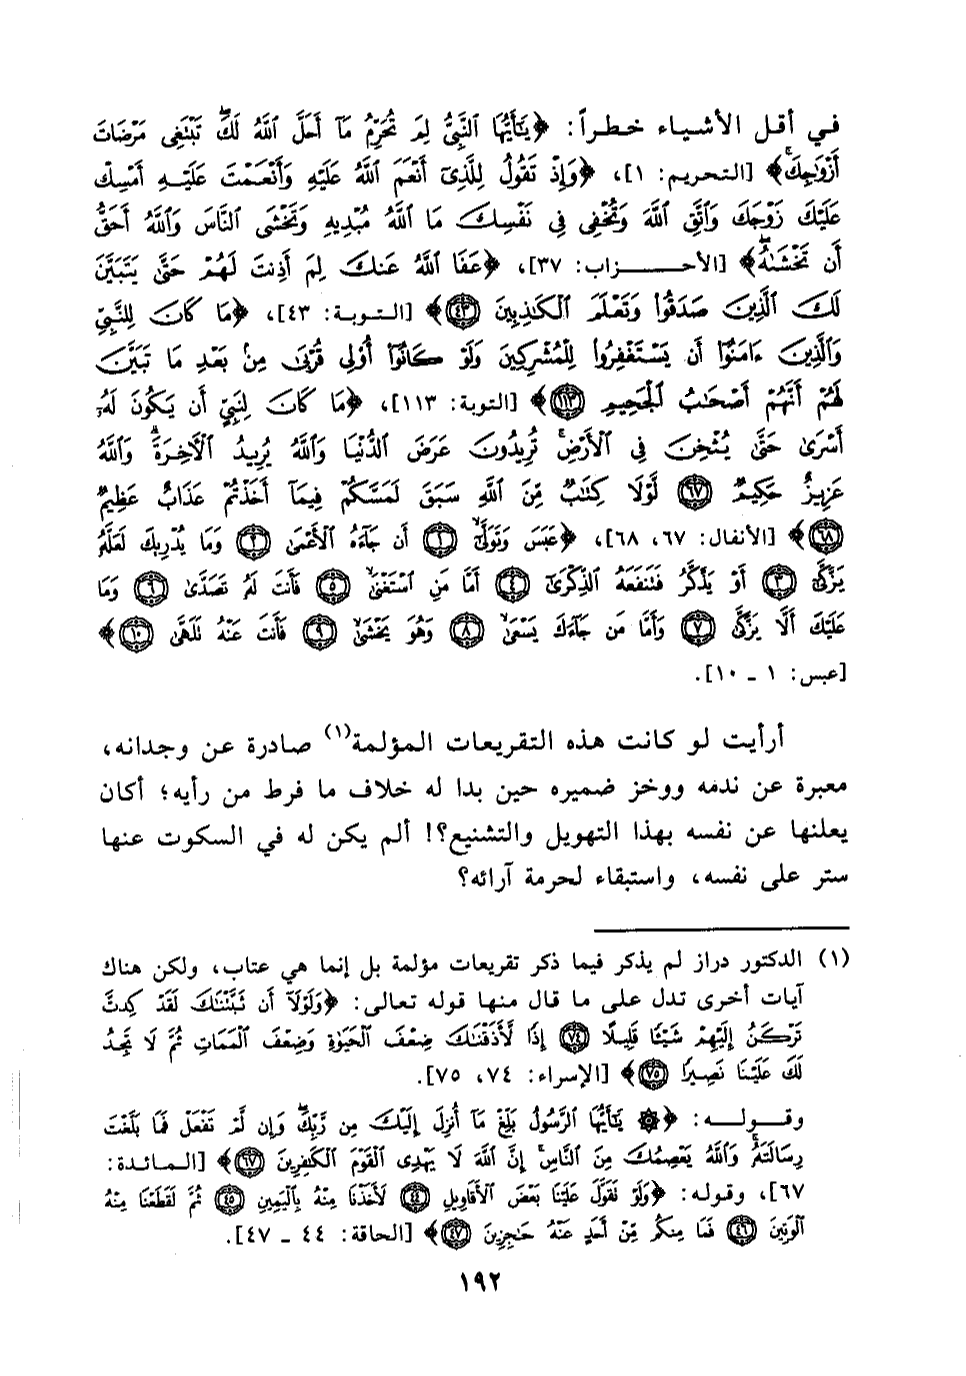 في أقل الأشياء خطراً: ﴿يَٰٓأَيُّهَا ٱلنَّبِيُّ لِمَ تُحَرِّمُ مَآ أَحَلَّ ٱللَّهُ لَكَۖ تَبْتَغِى مَرْضَاتَ
أَزْوَٰجِكَۚ﴾ [التحريم: ١]، ﴿وَإِذْ تَقُولُ لِلَّذِىٓ أَنْعَمَ ٱللَّهُ عَلَيْهِ وَأَنْعَمْتَ عَلَيْهِ أَمْسِكْ
عَلَيْكَ زَوْجَكَ وَٱتَّقِ ٱللَّهَ وَتُخْفِى فِى نَفْسِكَ مَا ٱللَّهُ مُبْدِيهِ وَتَخْشَى ٱلنَّاسَ وَٱللَّهُ أَحَقُّ
أَن تَخْشَىٰهُۖ﴾ [الأحزاب: ٣٧]، ﴿عَفَا ٱللَّهُ عَنكَ لِمَ أَذِنتَ لَهُمْ حَتَّىٰ يَتَبَيَّنَ
لَكَ ٱلَّذِينَ صَدَقُوا۟ وَتَعْلَمَ ٱلْكَٰذِبِينَ ٤٣﴾ [التوبة: ٤٣]، ﴿مَا كَانَ لِلنَّبِيِّ
وَٱلَّذِينَ ءَامَنُوٓا۟ أَن يَسْتَغْفِرُوا۟ لِلْمُشْرِكِينَ وَلَوْ كَانُوٓا۟ أُو۟لِى قُرْبَىٰ مِنۢ بَعْدِ مَا تَبَيَّنَ
لَهُمْ أَنَّهُمْ أَصْحَٰبُ ٱلْجَحِيمِ ١١٣﴾ [التوبة: ١١٣]، ﴿مَا كَانَ لِنَبِيٍّ أَن يَكُونَ لَهُۥٓ
أَسْرَىٰ حَتَّىٰ يُثْخِنَ فِى ٱلْأَرْضِۚ تُرِيدُونَ عَرَضَ ٱلدُّنْيَا وَٱللَّهُ يُرِيدُ ٱلْءَاخِرَةَۗ وَٱللَّهُ
عَزِيزٌ حَكِيمٌ ٦٧ لَّوْلَا كِتَٰبٌ مِّنَ ٱللَّهِ سَبَقَ لَمَسَّكُمْ فِيمَآ أَخَذْتُمْ عَذَابٌ عَظِيمٌ
٦٨﴾ [الأنفال: ٦٧، ٦٨]، ﴿عَبَسَ وَتَوَلَّىٰٓ ١ أَن جَآءَهُ ٱلْأَعْمَىٰ ٢ وَمَا يُدْرِيكَ لَعَلَّهُۥ
يَزَّكَّىٰٓ ٣ أَوْ يَذَّكَّرُ فَتَنفَعَهُ ٱلذِّكْرَىٰٓ ٤ أَمَّا مَنِ ٱسْتَغْنَىٰ ٥ فَأَنتَ لَهُۥ تَصَدَّىٰ ٦ وَمَا
عَلَيْكَ أَلَّا يَزَّكَّىٰ ٧ وَأَمَّا مَن جَآءَكَ يَسْعَىٰ ٨ وَهُوَ يَخْشَىٰ ٩ فَأَنتَ عَنْهُ تَلَهَّىٰ ١٠﴾
[عبس: ١ ـ ١٠].
أرأيت لو كانت هذه التقريعات المؤلمة(١) صادرة عن وجدانه،
معبرة عن ندمه ووخز ضميره حين بدا له خلاف ما فرط من رأيه؛ أكان
يعلنها عن نفسه بهذا التهويل والتشنيع؟! ألم يكن له في السكوت عنها
ستر على نفسه، واستبقاء لحرمة آرائه؟
(١) الدكتور دراز لم يذكر فيما ذكر تقريعات مؤلمة بل إنما هي عتاب، ولكن هناك
آيات أخرى تدل على ما قال منها قوله تعالى: ﴿وَلَوْلَآ أَن ثَبَّتْنَٰكَ لَقَدْ كِدتَّ
تَرْكَنُ إِلَيْهِمْ شَيْـًٔا قَلِيلًا ٧٤ إِذًا لَّأَذَقْنَٰكَ ضِعْفَ ٱلْحَيَوٰةِ وَضِعْفَ ٱلْمَمَاتِ ثُمَّ لَا تَجِدُ
لَكَ عَلَيْنَا نَصِيرًا ٧٥﴾ [الإسراء: ٧٤، ٧٥].
وقوله: ﴿۞ يَٰٓأَيُّهَا ٱلرَّسُولُ بَلِّغْ مَآ أُنزِلَ إِلَيْكَ مِن رَّبِّكَۖ وَإِن لَّمْ تَفْعَلْ فَمَا بَلَّغْتَ
رِسَالَتَهُۥۚ وَٱللَّهُ يَعْصِمُكَ مِنَ ٱلنَّاسِۗ إِنَّ ٱللَّهَ لَا يَهْدِى ٱلْقَوْمَ ٱلْكَٰفِرِينَ ٦٧﴾ [المائدة:
٦٧]، وقوله: ﴿وَلَوْ تَقَوَّلَ عَلَيْنَا بَعْضَ ٱلْأَقَاوِيلِ ٤٤ لَأَخَذْنَا مِنْهُ بِٱلْيَمِينِ ٤٥ ثُمَّ لَقَطَعْنَا مِنْهُ
ٱلْوَتِينَ ٤٦ فَمَا مِنكُم مِّنْ أَحَدٍ عَنْهُ حَٰجِزِينَ ٤٧﴾ [الحاقة: ٤٤ ـ ٤٧].
١٩٢